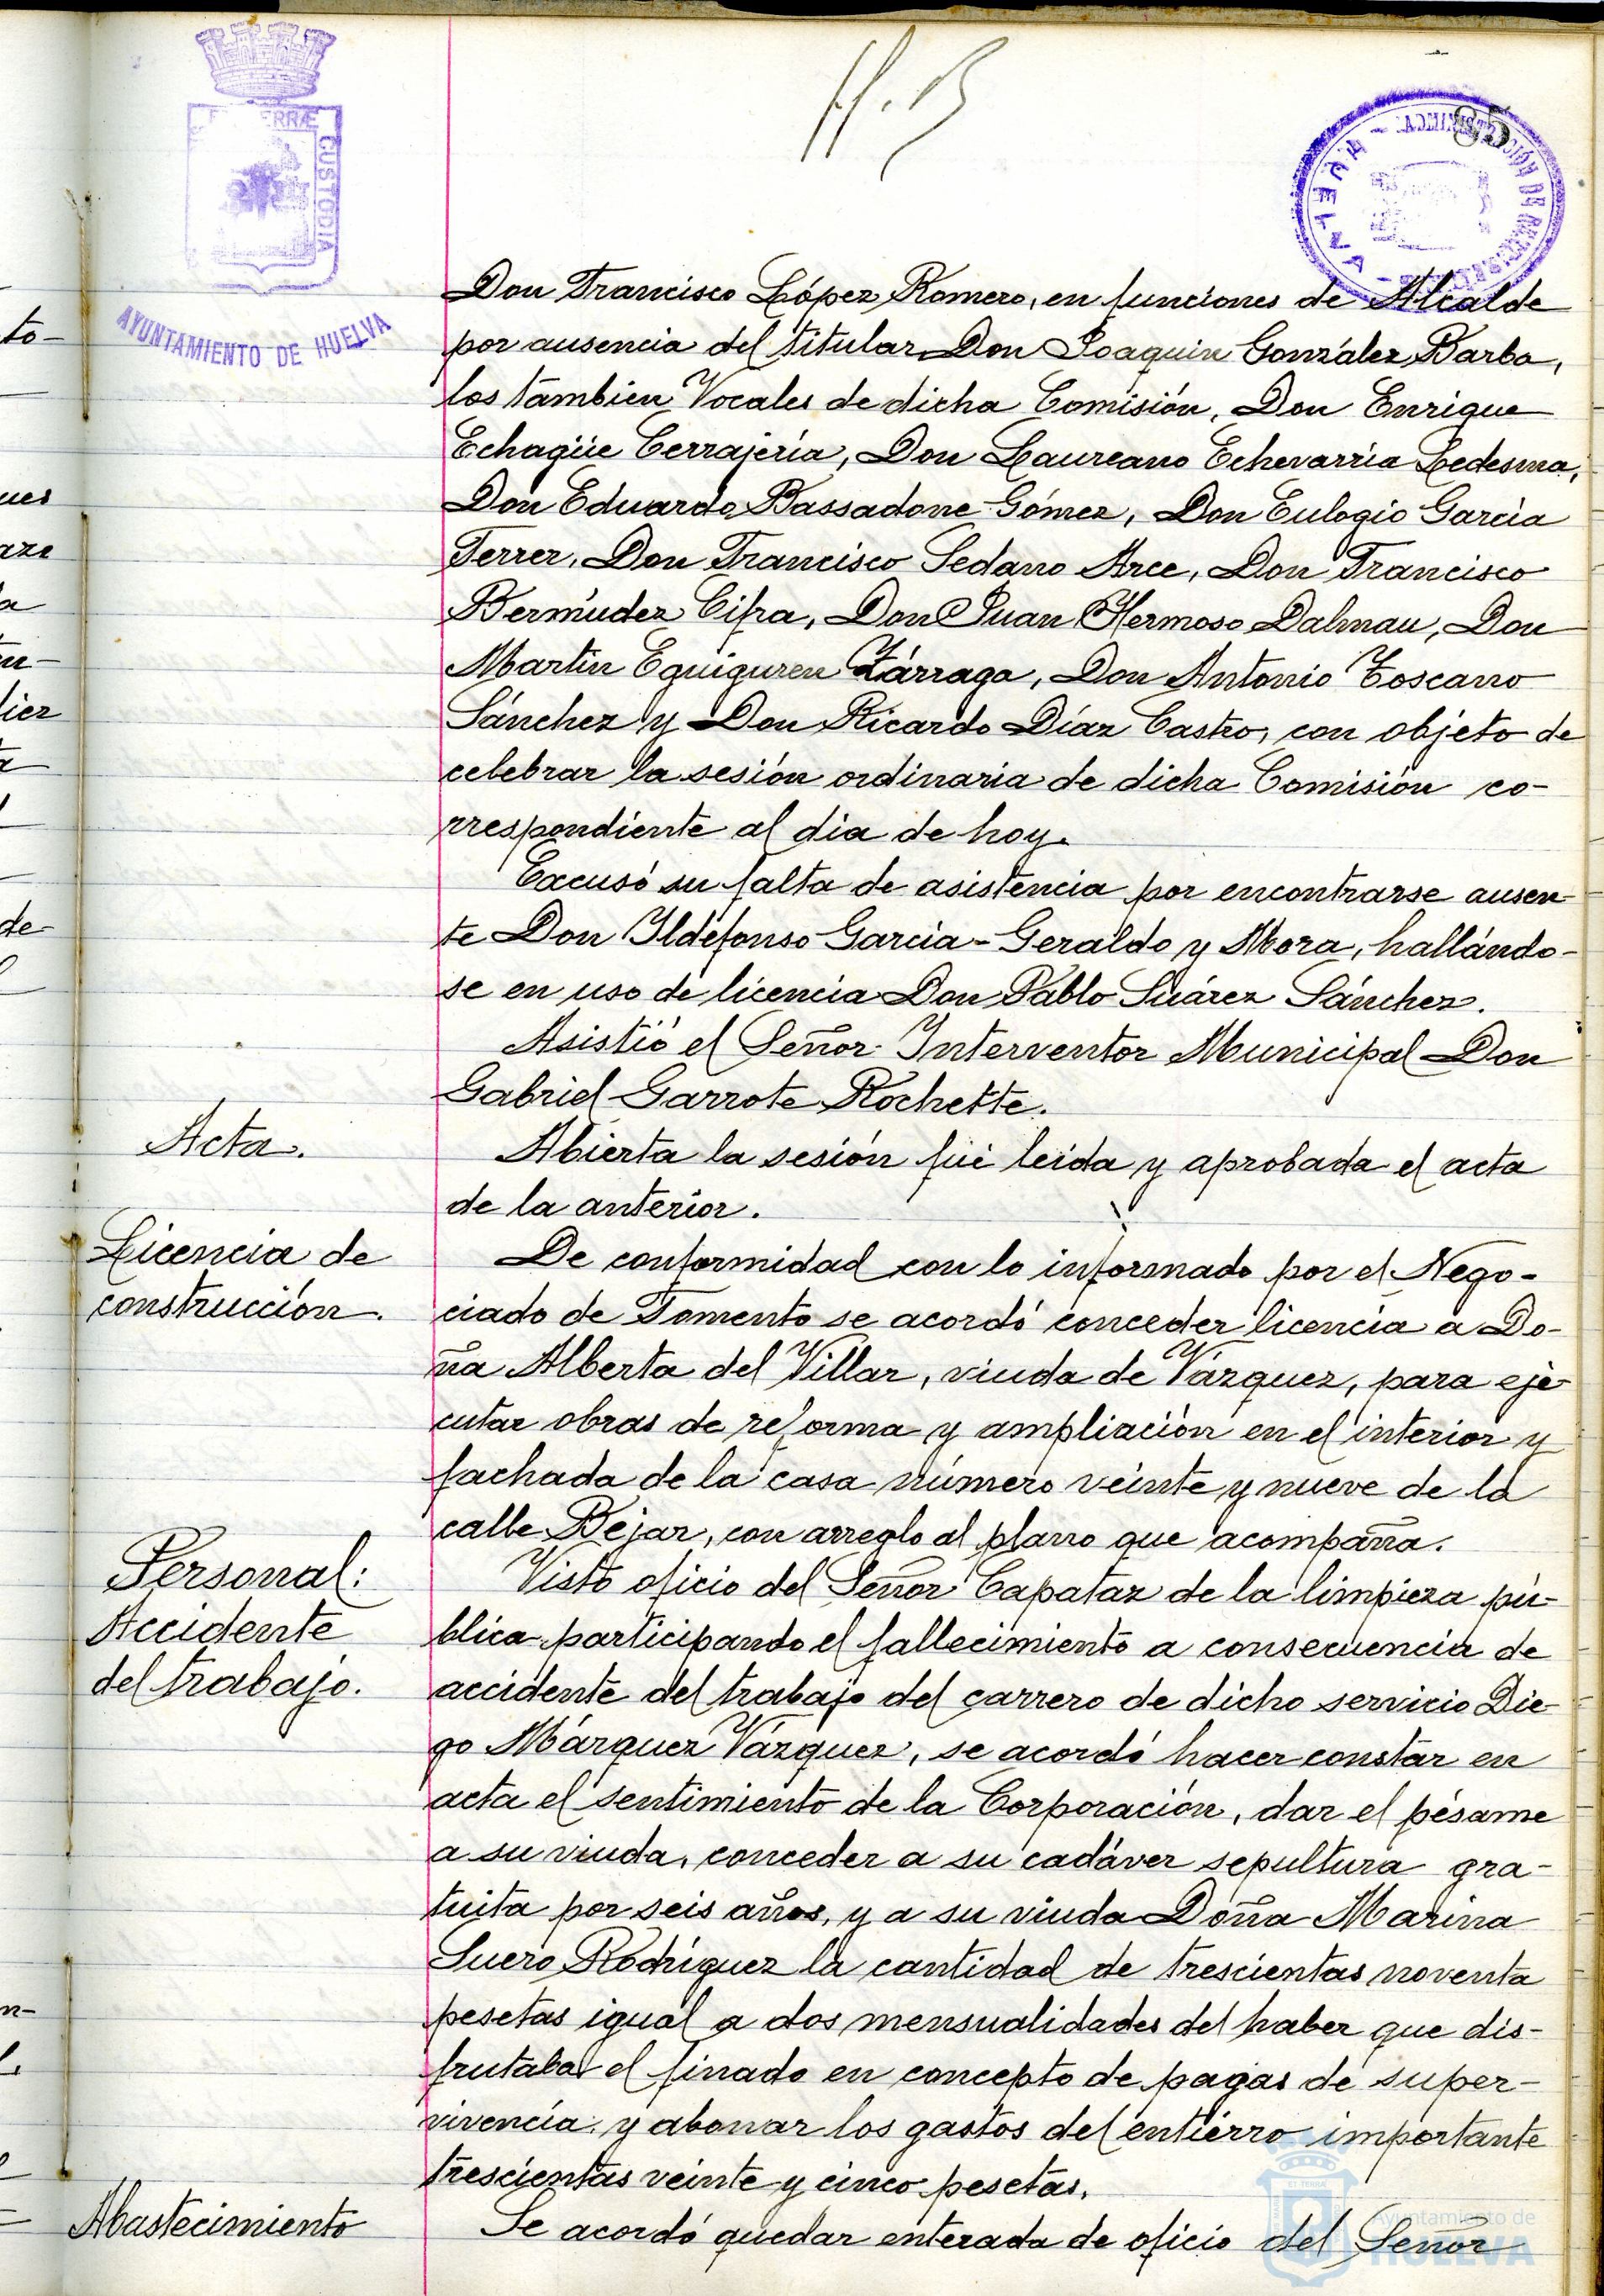 85
TERRÆ
CUSTODIA
AYUNTAMIENTO DE HUELVA
HUELVA
Don Francisco López Romero, en funciones de Alcalde
por ausencia del titular Don Joaquin González Barba,
los tambien Vocales de dicha Comisión, Don Enrique
Echagüe Cerrajería, Don Laureano Echevarría Ledesma,
Don Eduardo Bassadone Gómez, Don Eulogio García
Ferrer, Don Francisco Sedano Arce, Don Francisco
Bermúdez Cifra, Don Juan Hermoso Dalmau, Don
Martín Eguiguren Zárraga, Don Antonio Toscano
Sánchez y Don Ricardo Díaz Castro, con objeto de
celebrar la sesión ordinaria de dicha Comisión co-
rrespondiente al dia de hoy.
Excusó su falta de asistencia por encontrarse ausen-
te Don Ildefonso García-Geraldo y Mora, hallándo-
se en uso de licencia Don Pablo Suárez Sánchez.
Asistió el Señor Interventor Municipal Don
Gabriel Garrote Rochette.
Acta.
Abierta la sesión fué leida y aprobada el acta
de la anterior.
Licencia de
construcción.
De conformidad con lo informado por el Nego-
ciado de Fomento se acordó conceder licencia a Do-
ña Alberta del Villar, viuda de Vázquez, para eje-
cutar obras de reforma y ampliación en el interior y
fachada de la casa número veinte y nueve de la
calle Bejar, con arreglo al plano que acompaña.
Personal:
Accidente
del trabajo.
Visto oficio del Señor Capataz de la limpieza pú-
blica participando el fallecimiento a consecuencia de
accidente del trabajo del carrero de dicho servicio Die-
go Márquez Vázquez, se acordó hacer constar en
acta el sentimiento de la Corporación, dar el pésame
a su viuda, conceder a su cadáver sepultura gra-
tuita por seis años, y a su viuda Doña Marina
Suero Rodríguez la cantidad de trescientas noventa
pesetas igual a dos mensualidades del haber que dis-
frutaba el finado en concepto de pagas de super-
vivencia y abonar los gastos del entierro importante
trescientas veinte y cinco pesetas.
Abastecimiento
Se acordó quedar enterada de oficio del Señor
Ayuntamiento de
HUELVA